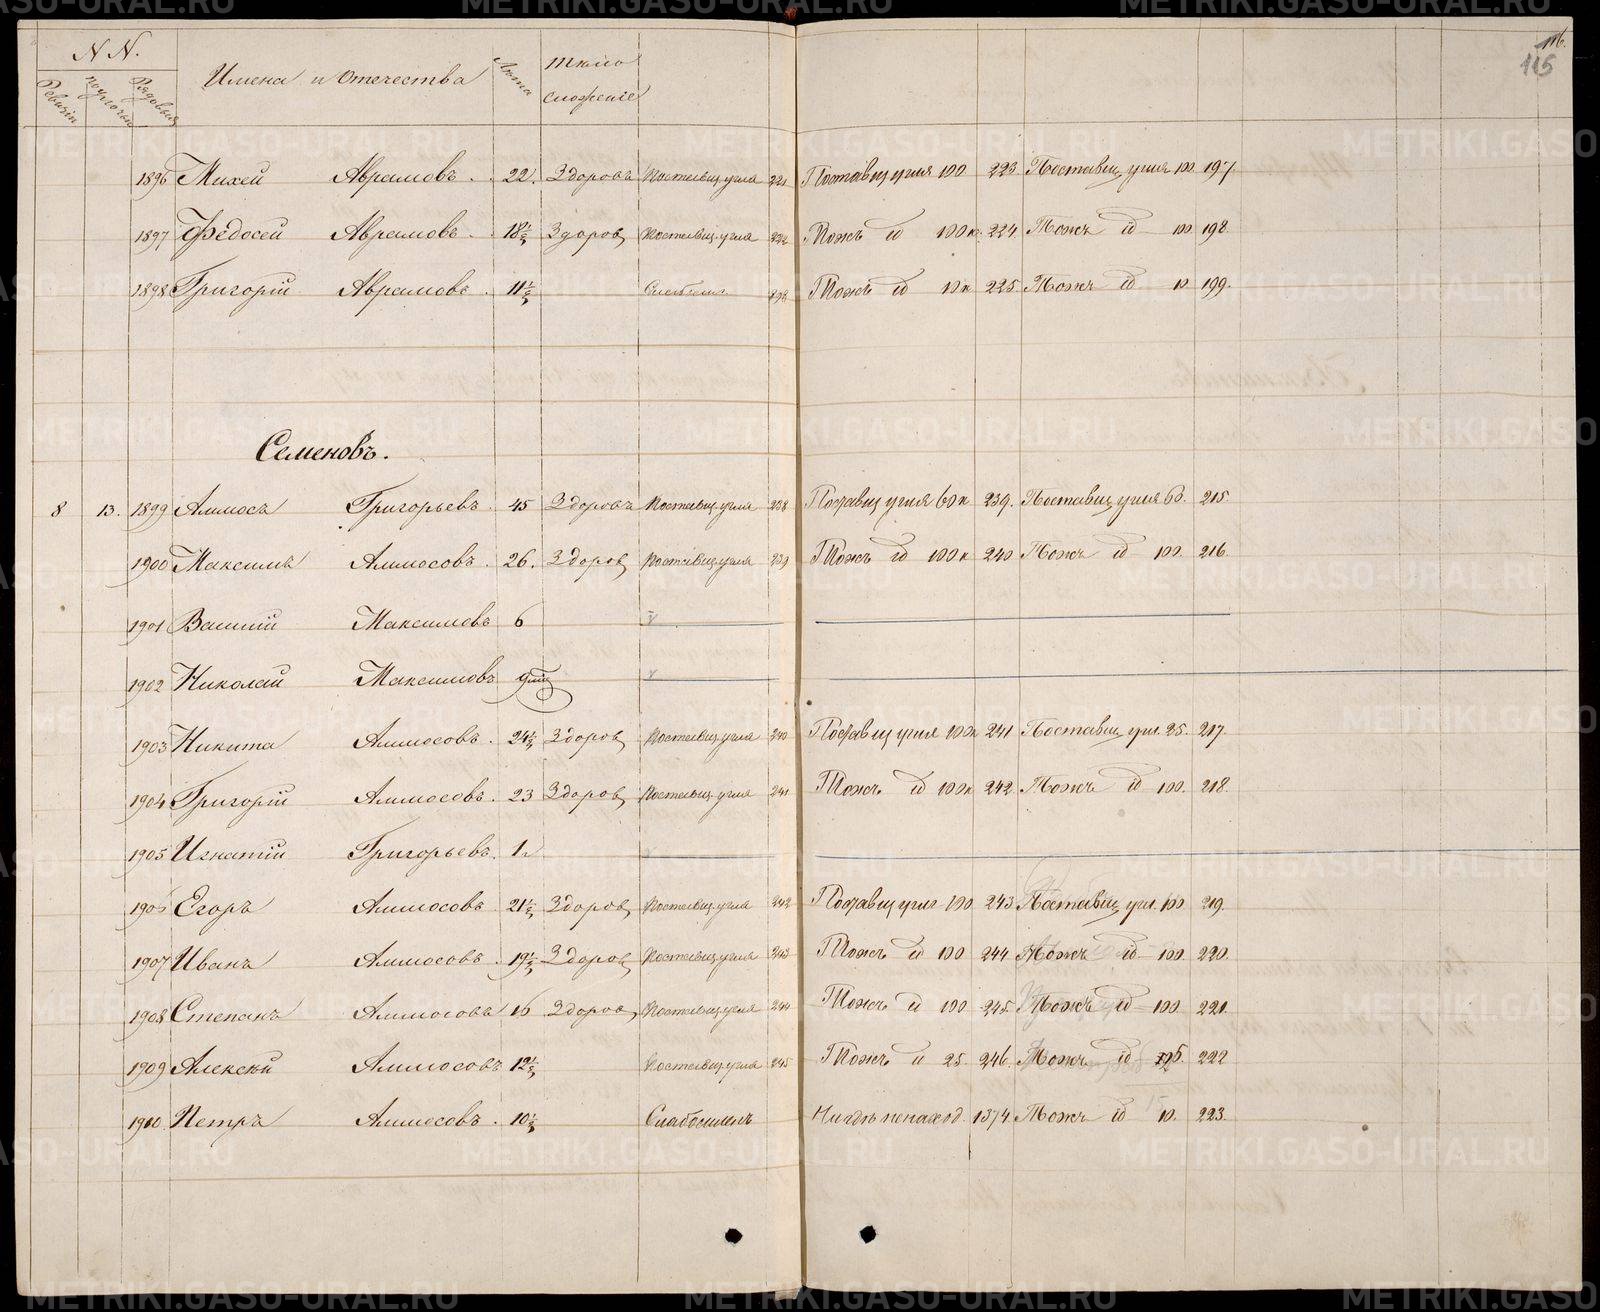 116.
115
NN.
Ревизiи
Рядовыя
Имена и Отечества
Лѣта
Тѣло
сложенiе
1896 Михей Аврамовъ. 22. Здоровъ Поставщ. угля 221 Поставщ угля 100 223. Поставщ. угля 100. 197.
1897 Федосей Аврамовъ. 18½ Здоров Поставщ. угля 222 Тожъ id 100 к. 224. Тожъ id 100. 198
1898 Григорiй Аврамовъ. 11½ Тожъ id 10 к 225 Тожъ id 10 199.
Семеновъ.
8 13. 1899 Аммосъ Григорьевъ. 45 Здоровъ Поставщ. угля 238 Поставщ угля 60 к 239. Поставщ. угля 60. 215
1900 Максимъ Аммосовъ. 26. Здоров Поставщ. угля 239 Тожъ id 100 к 240 Тожъ id 100. 216.
1901 Василiй Максимовъ 6
1902 Николай Максимовъ
1903 Никита Аммосовъ. 24½ Здоров Поставщ. угля 240 Поставщ угля 100 к 241 Поставщ. угл. 25. 217.
1904 Григорiй Аммосовъ. 23 Здоров Поставщ. угля 241 Тожъ id 100 к 242. Тожъ id 100. 218.
1905 Игнатiй Григорьевъ. 1
1906 Егоръ Аммосовъ 21½ Здоров Поставщ. угля 242 Поставщ угля 100 243 Поставщ. угл. 100. 219.
1907 Иванъ Аммосовъ. 19½ Здоров Поставщ. угля 243 Тожъ id 100 244 Тожъ id 100. 220.
1908 Степанъ Аммосовъ 16 Здоров Поставщ. угля 244 Тожъ id 100 245. Тожъ id 100. 221.
1909 Алексѣй Аммосовъ 12½ Поставщ. угля 245 Тожъ id 25. 246. Тожъ id 222
1910. Петръ Аммосовъ. 10½ Слабосиленъ 1374. Тожъ id 10. 223.
METRIKI.GASO-URAL.RU